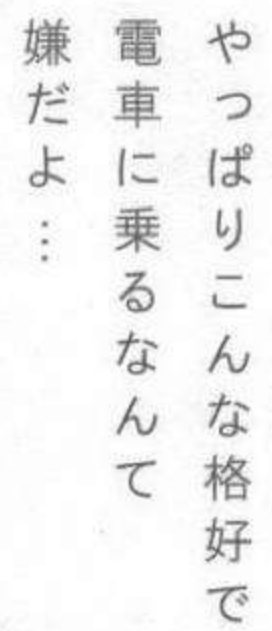 やっぱりこんな格好で
電車に乗るなんて
嫌だよ…